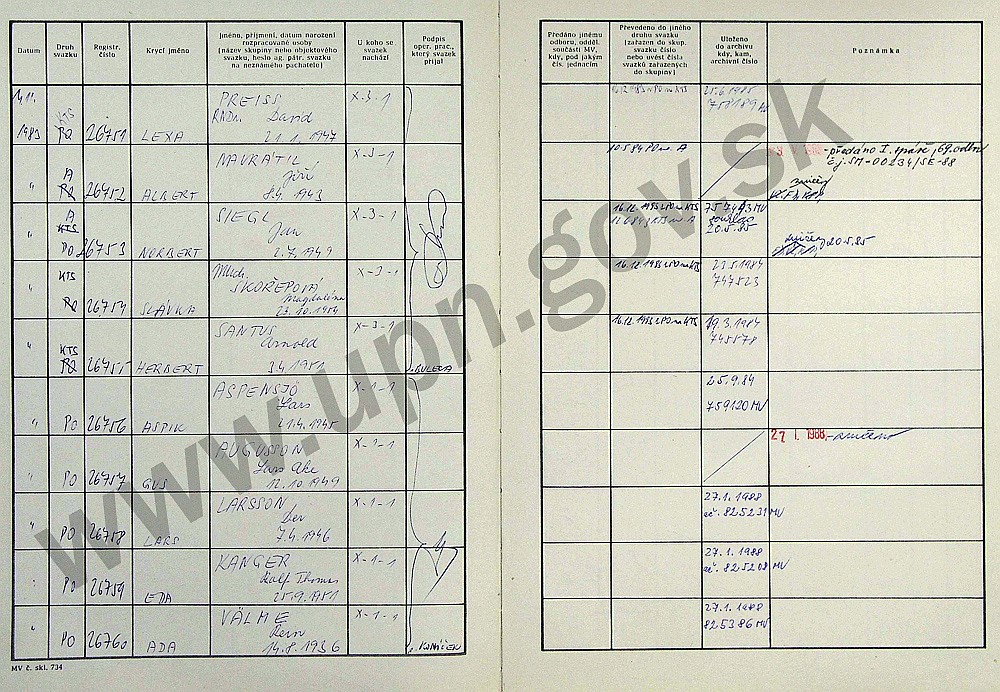 Datum
Druh
svazku
Registr.
číslo
Krycí jméno
Jméno, příjmení, datum narození
rozpracované osoby
(název skupiny nebo objektového
svazku, heslo ag. pátr. svazku
na neznámého pachatele)
U koho se
svazek
nachází
Podpis
oper. prac.,
který svazek
přijal
Předáno jinému
odboru, odděl.
součásti MV,
kdy, pod jakým
čís. jednacím
Převedeno do jiného
druhu svazku
(zařazen do skup.
svazku číslo
nebo uvést čísla
svazků zařazených
do skupiny)
Uloženo
do archivu
kdy, kam,
archivní číslo
Poznámka
1983 KTS 26751 LEXA
PREISS
RNDr. David
21.1.1947
X-3-1
25.6.1985
758189 MV
" A 26752 ALBERT
NAVRÁTIL
Jiří
8.4.1943
X-3-1
10.5.84 PO na A
1988 - předáno I. správě, 69. odbor
č.j. SM-00234/SE-88
" A KTS PO 26753 NORBERT
SIEGL
Jan
2.7.1949
X-3-1
16.12.1983 z PO na KTS
757493 MV
20.5.85
20.5.85
" KTS 26754 SLÁVKA
MUDr.
SKOŘEPOVÁ
Magdaléna
23.10.1954
X-3-1
16.12.1983 z PO na KTS
23.5.1984
747523
" KTS 26755 HERBERT
SANTUS
Arnold
3.4.1951
X-3-1
16.12.1983 z PO na KTS
19.3.1984
745578
" PO 26756 ASPIK
ASPENSJÖ
Lars
21.4.1945
X-1-1
25.9.84
759120 MV
" PO 26757 GUS
AUGUSSON
Lars Åke
12.10.1949
X-1-1
27. 1. 1988 - zničeno
" PO 26758 LARS
LARSSON
7.4.1946
X-1-1
27.1.1988
ač. 825231 MV
" PO 26759 EDA
KANGER
Rolf Thomas
25.9.1951
X-1-1
27.1.1988
ač. 825208 MV
" PO 26760 ADA
VÄLME
Rein
14.8.1936
X-1-1
27.1.1988
825386 MV
MV č. skl. 734
www.upn.gov.sk